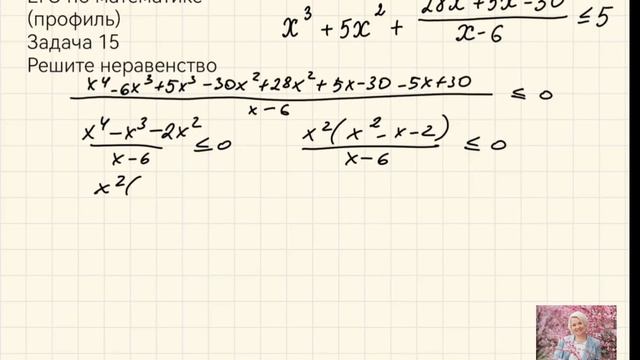 ЕГЭ по математике
(профиль)
Задача 15
Решите неравенство
x³ + 5x² + (28x² + 5x - 30)/(x - 6) ≤ 5
(x⁴ - 6x³ + 5x³ - 30x² + 28x² + 5x - 30 - 5x + 30)/(x - 6) ≤ 0
(x⁴ - x³ - 2x²)/(x - 6) ≤ 0    (x²(x² - x - 2))/(x - 6) ≤ 0
x²(